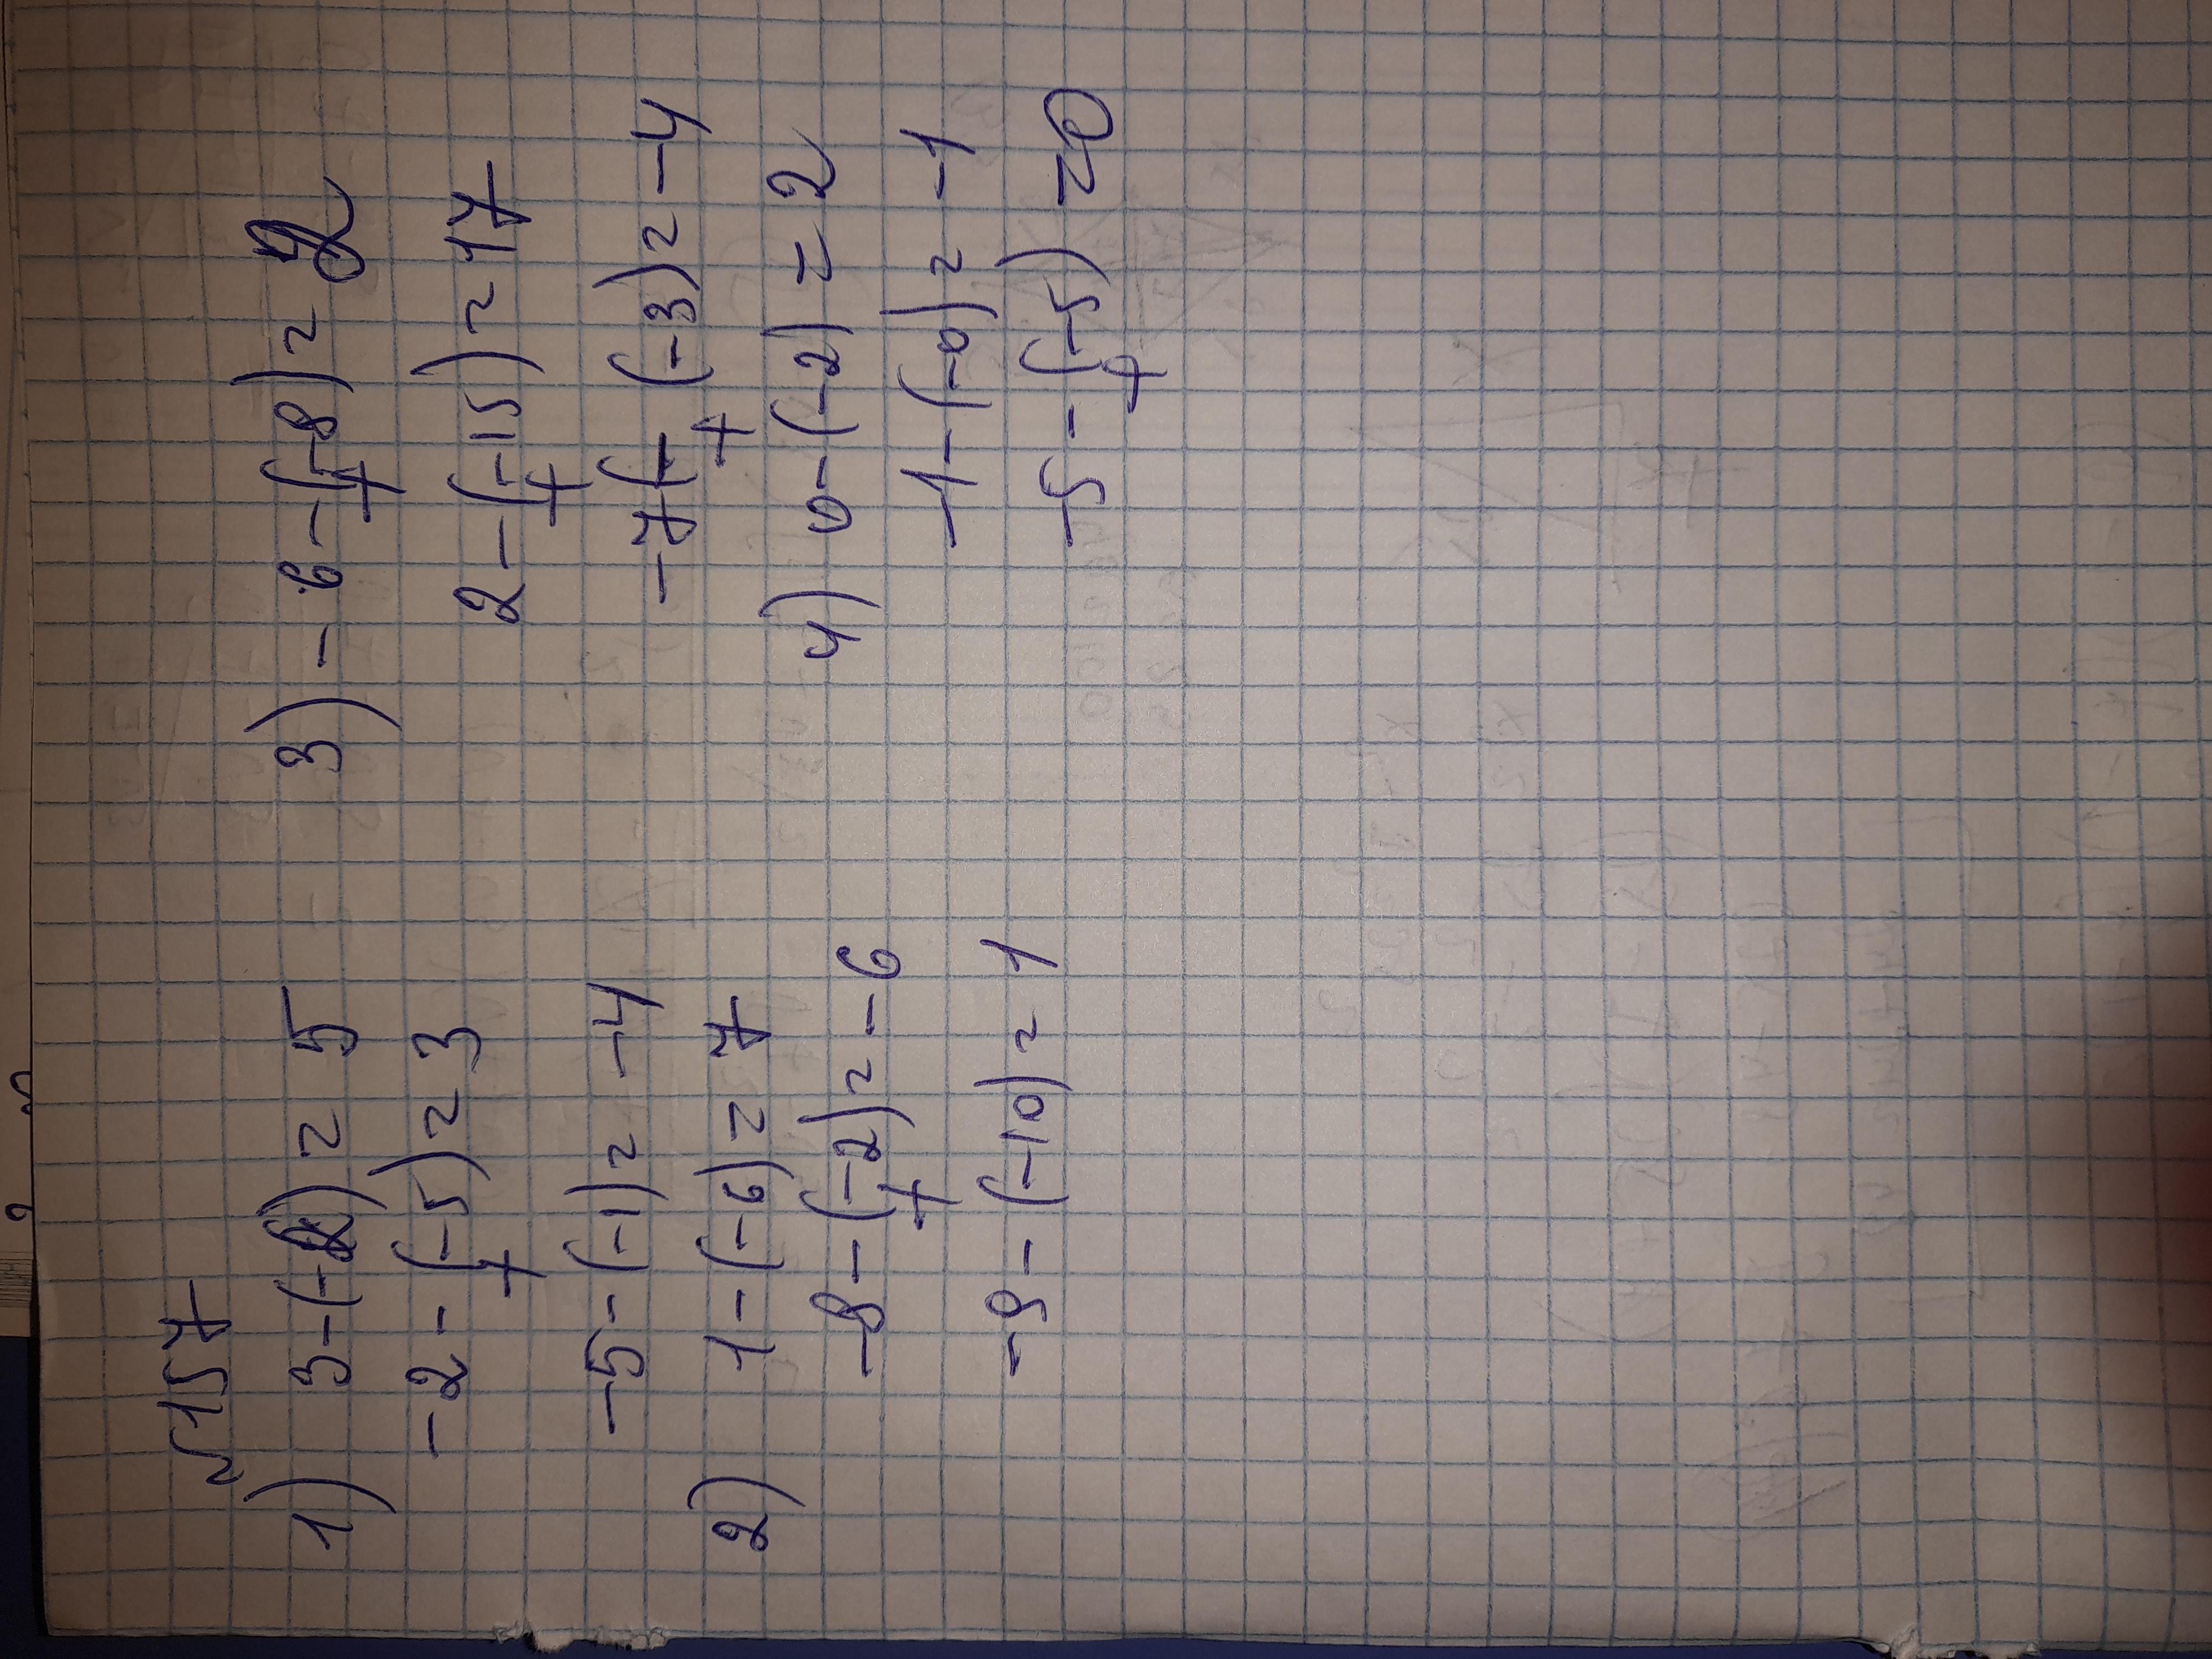 √157
1) 3-(-2) = 5
-2-(-5) = 3
+
-5-(-1) = -4
2) 1-(-6) = 7
-8-(-2) = -6
+
-9-(-10) = 1
3) -6-(-8) = 2
+
2-(-15) = 17
+
-7(-(-3) = -4
+
4) 0-(-2) = 2
-1-(-0) = -1
-5-(-5) = 0
+